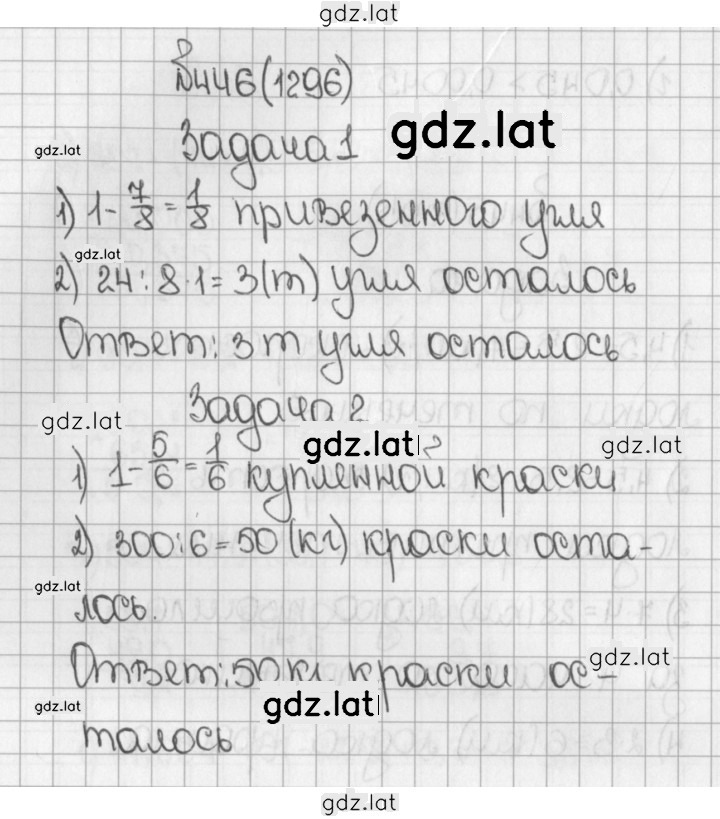 gdz.lat
№446(1296)
gdz.lat
gdz.lat
Задача 1
1) 1 - 7/8 = 1/8 привезенного угля
gdz.lat
2) 24 : 8 · 1 = 3(т) угля осталось
Ответ: 3 т угля осталось
Задача 2
gdz.lat
gdz.lat
gdz.lat
1) 1 - 5/6 = 1/6 купленной краски
2) 300 : 6 = 50 (кг) краски оста-
gdz.lat
лось.
Ответ: 50 кг краски ос-
gdz.lat
gdz.lat
gdz.lat
талось
gdz.lat